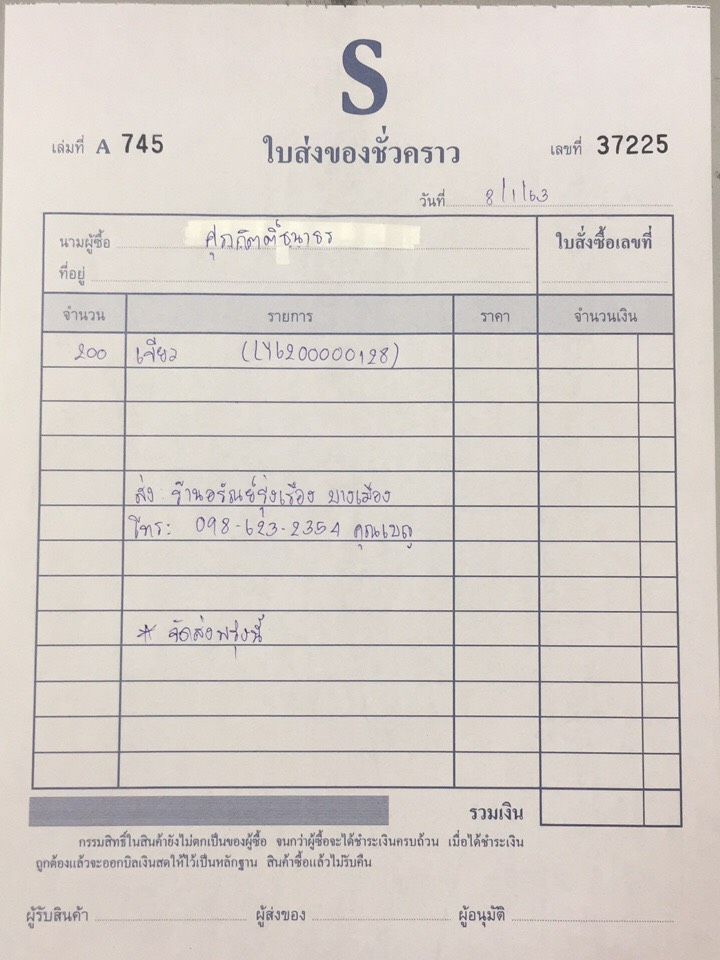 S
เล่มที่ A 745 ใบส่งของชั่วคราว เลขที่ 37225
วันที่ 8/1/63
นามผู้ซื้อ ศุภกิตติ์ธนาธร ใบสั่งซื้อเลขที่
ที่อยู่
จำนวน รายการ ราคา จำนวนเงิน
200 เขียว (LY6200000128)
ส่ง: ร้านอรัณย์รุ่งเรือง บางเมือง
โทร: 098-623-2354 คุณเบญ
* จัดส่งพรุ่งนี้
รวมเงิน
กรรมสิทธิ์ในสินค้ายังไม่ตกเป็นของผู้ซื้อ จนกว่าผู้ซื้อจะได้ชำระเงินครบถ้วน เมื่อได้ชำระเงิน
ถูกต้องแล้วจะออกบิลเงินสดให้ไว้เป็นหลักฐาน สินค้าซื้อแล้วไม่รับคืน
ผู้รับสินค้า ผู้ส่งของ ผู้อนุมัติ